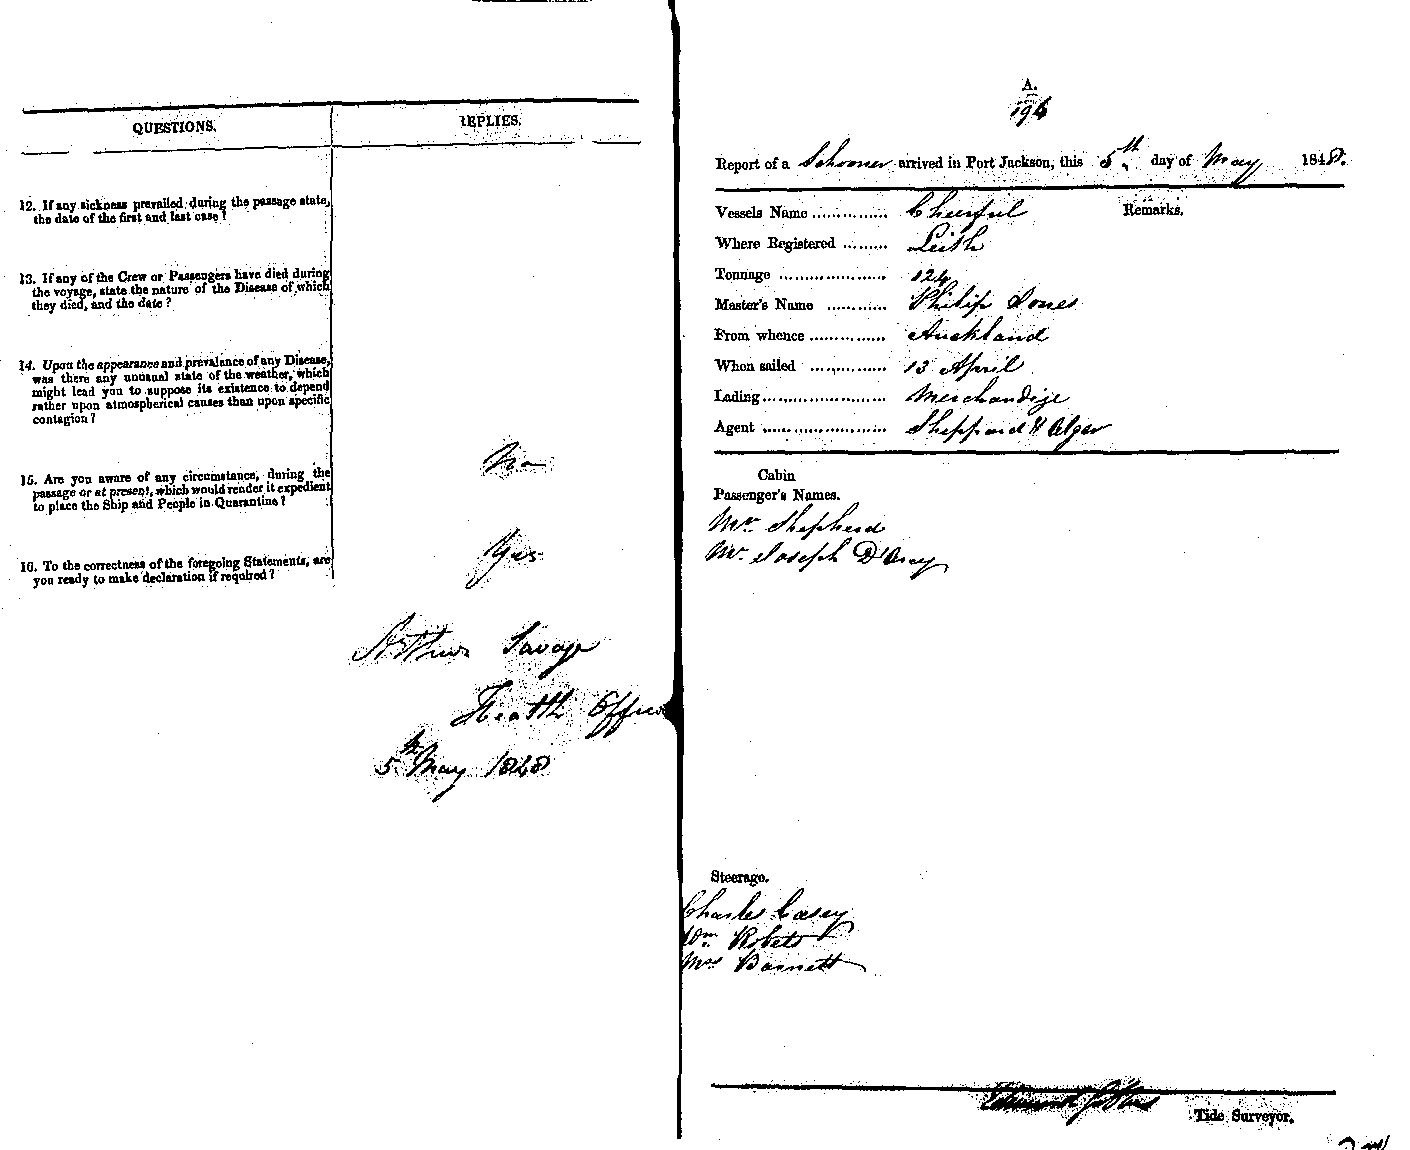 QUESTIONS.
REPLIES.
12. If any sickness prevailed during the passage state,
the date of the first and last case?
13. If any of the Crew or Passengers have died during
the voyage, state the nature of the Disease of which
they died, and the date?
14. Upon the appearance and prevalence of any Disease,
was there any unusual state of the weather, which
might lead you to suppose its existence to depend
rather upon atmospherical causes than upon specific
contagion?
15. Are you aware of any circumstance, during the
passage or at present, which would render it expedient
to place the Ship and People in Quarantine?
No
16. To the correctness of the foregoing Statements, are
you ready to make declaration if required?
Yes
Arthur Savage
Health Officer
5th May 1848
A.
196
Report of a Schooner arrived in Port Jackson, this 5th day of May 1848.
Vessels Name .............. Cheerful
Remarks.
Where Registered ......... Leith
Tonnage .................... 124
Master's Name ............ Philip Jones
From whence .............. Auckland
When sailed .............. 13 April
Lading....................... Merchandize
Agent ....................... Sheppard & Alger
Cabin
Passenger's Names.
Mr. Shepherd
Mr. Joseph D'Orsay
Steerage.
Charles Casey
Wm. Robets
Mrs Barnett
Tide Surveyor.